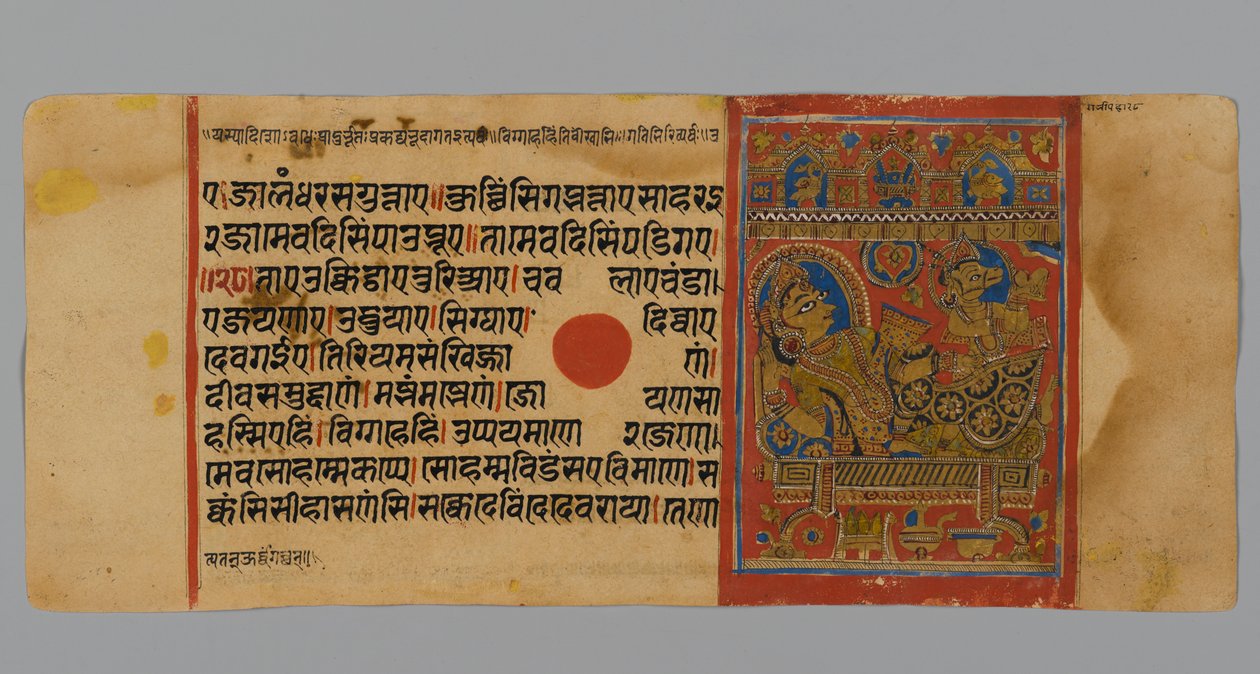 ॥विग्गहेहिं गतिभिरित्यर्थः॥
ए।जालंधरसगुत्ताए॥कुच्छिंसिगब्भत्ताएसाहरइ
२जामेवदिसिंपाउब्भूए॥तामेवदिसिंपडिगए।
॥२८॥ताएउक्किट्ठाएतुरिआए।चवलाएचंडा
एजयणाए।उद्धुयाए।सिग्घाए।दिव्वाए
देवगईए।तिरियमसंखिज्जाणं।
दीवसमुद्दाणं।मज्झंमज्झेणं।जोयणसा
हस्सिएहिं।विग्गहेहिं।उप्पयमाणे२जेणा
मेवसोहम्मेकप्पे।सोहम्मवडिंसएविमाणे।स
क्कंसिसीहासणंसि।सक्केदेविंदेदेवराया।तेणा